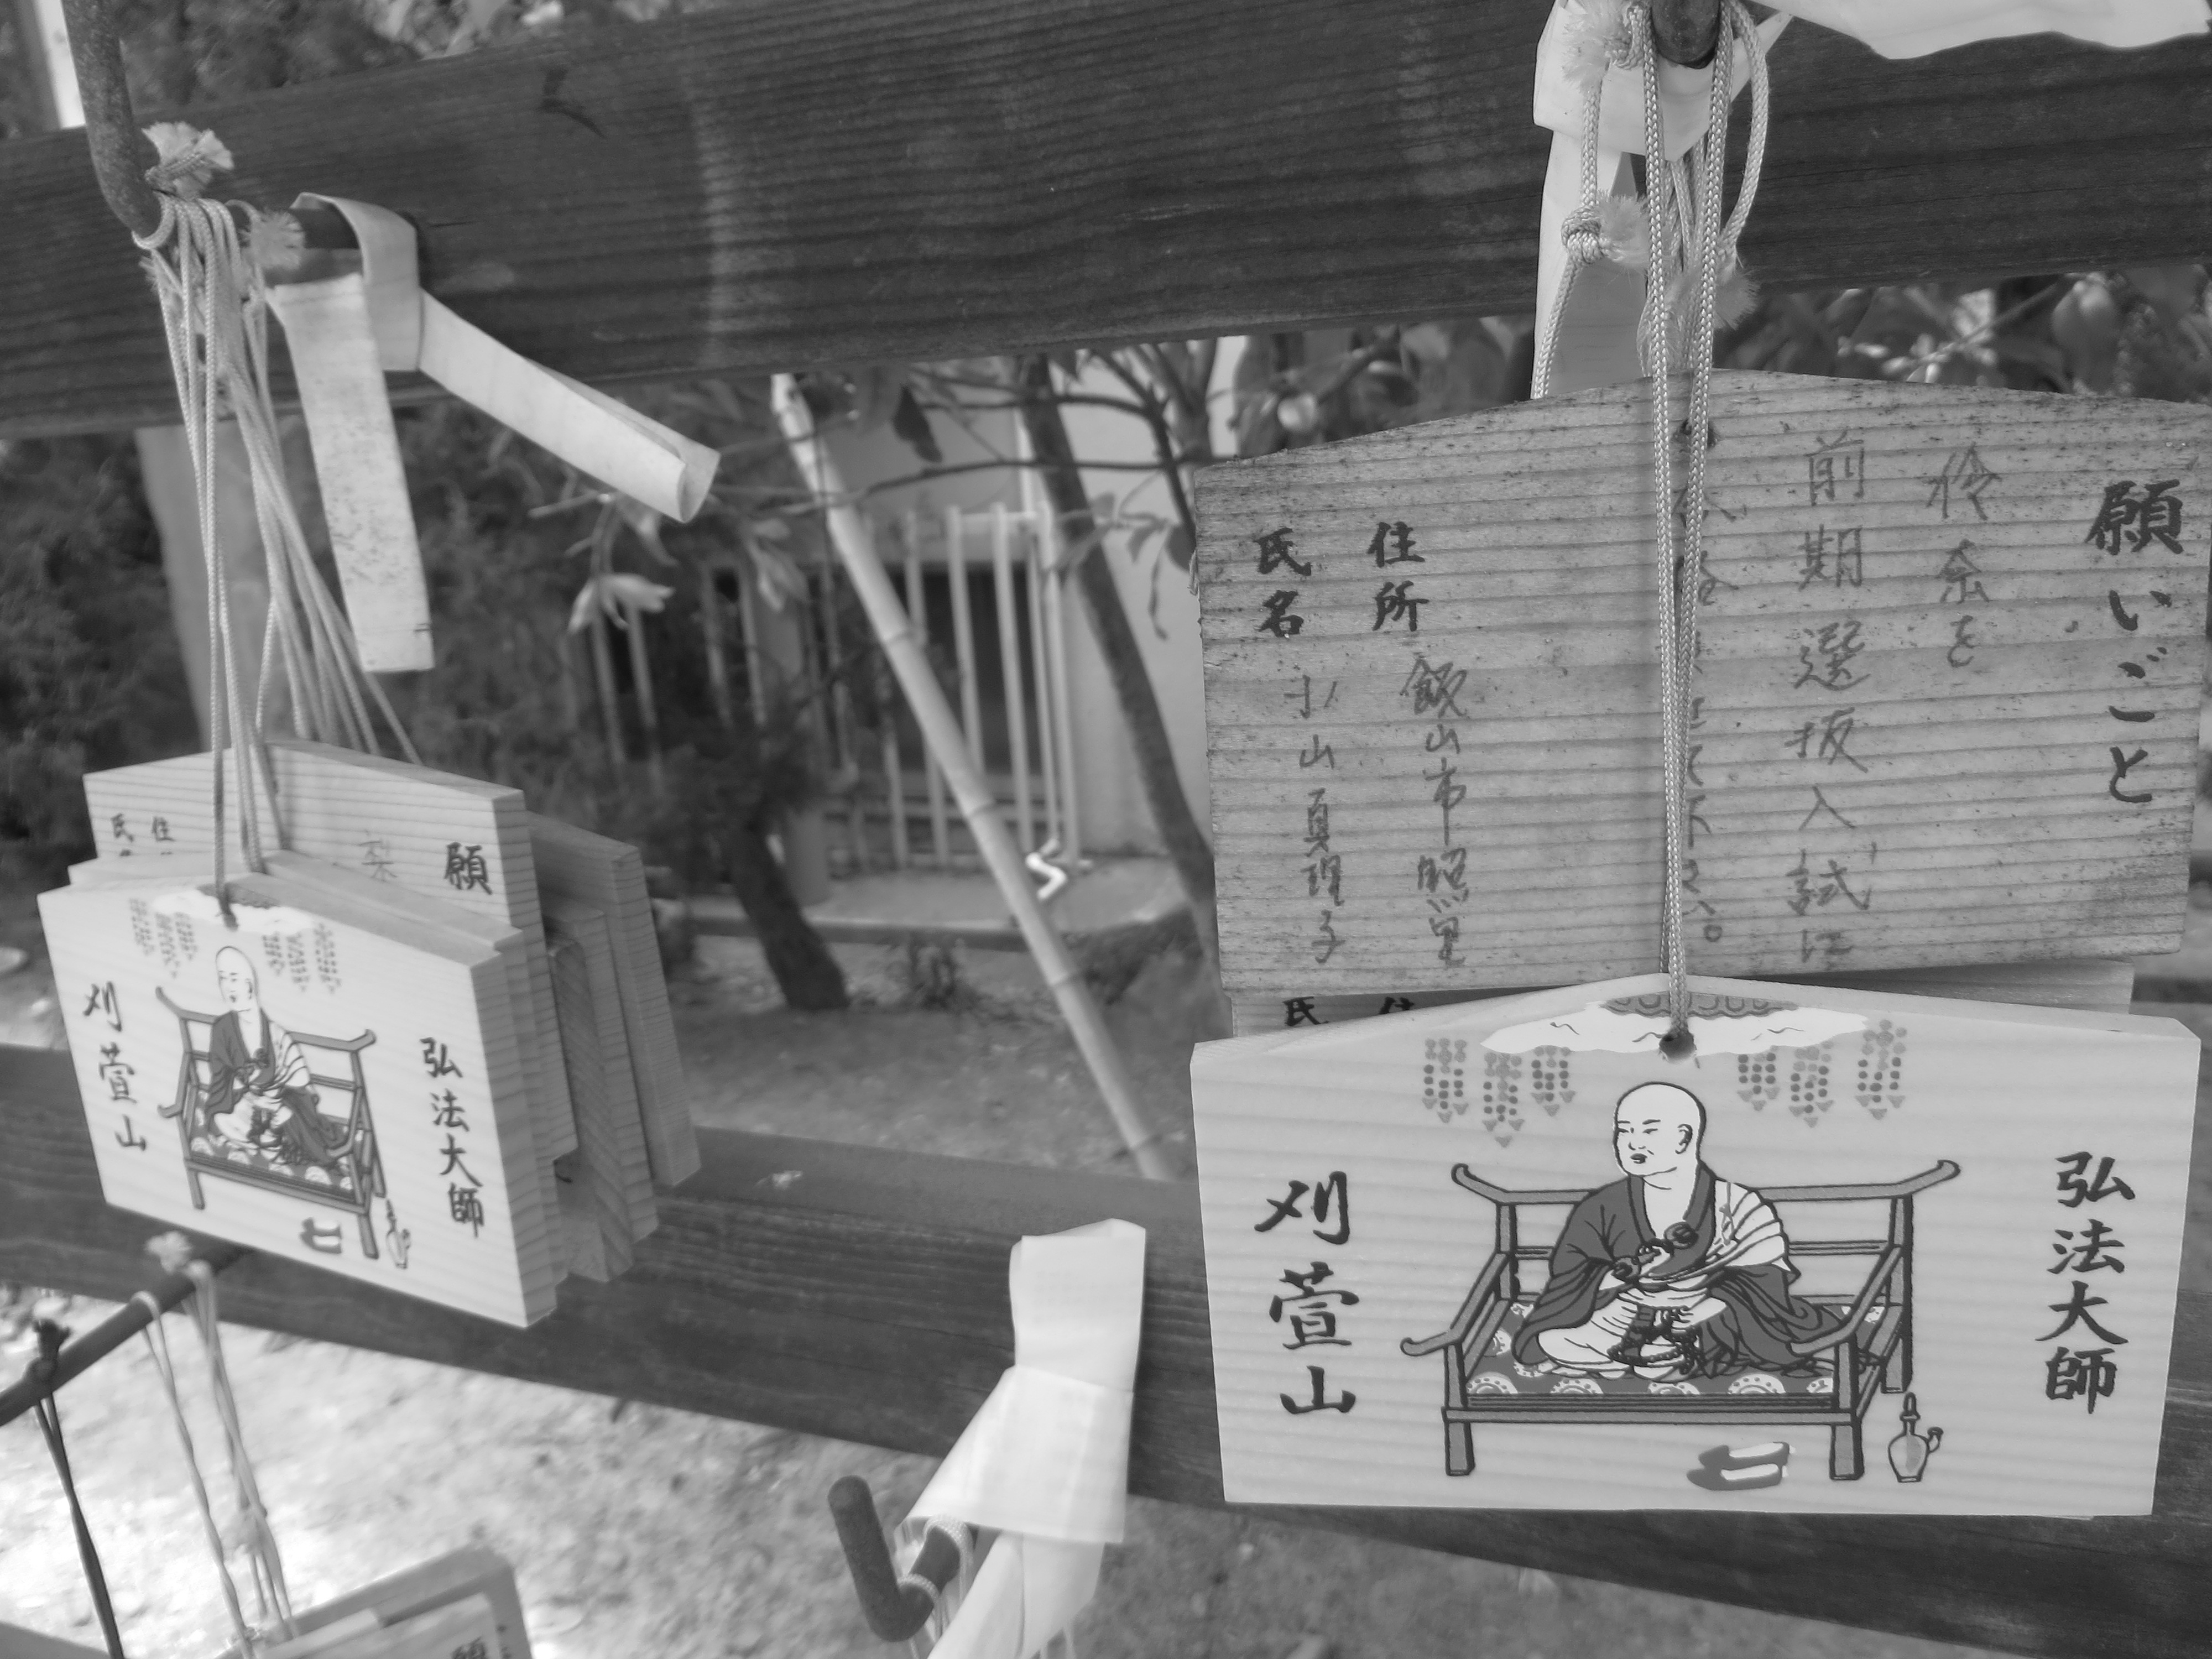 願いごと
伶奈を
前期選抜入試に
住所 飯山市照里
氏名 小山真理子
氏 住
弘法大師
刈萱山
願
氏 住
弘法大師
刈萱山